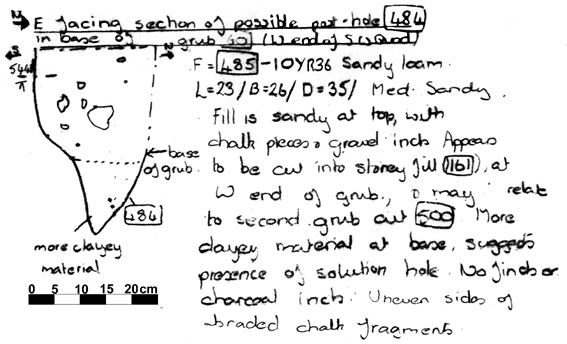 N E facing section of possible post-hole 484
in base of grub (W end of S Quad)
S
N
F = 485 - 10YR36 Sandy loam
L=23/B=26/D=35/ Med. Sandy
Fill is sandy at top, with
chalk pieces & gravel inch Appears
base of grub.
to be cut into stoney fill 1161), at
W end of grub., & may relate
484
to second grub cut 500 More
more clayey material
clayey material at base, suggests
presence of solution hole. No finds or
charcoal inch. Uneven sides of
chalk fragments.
0 5 10 15 20cm